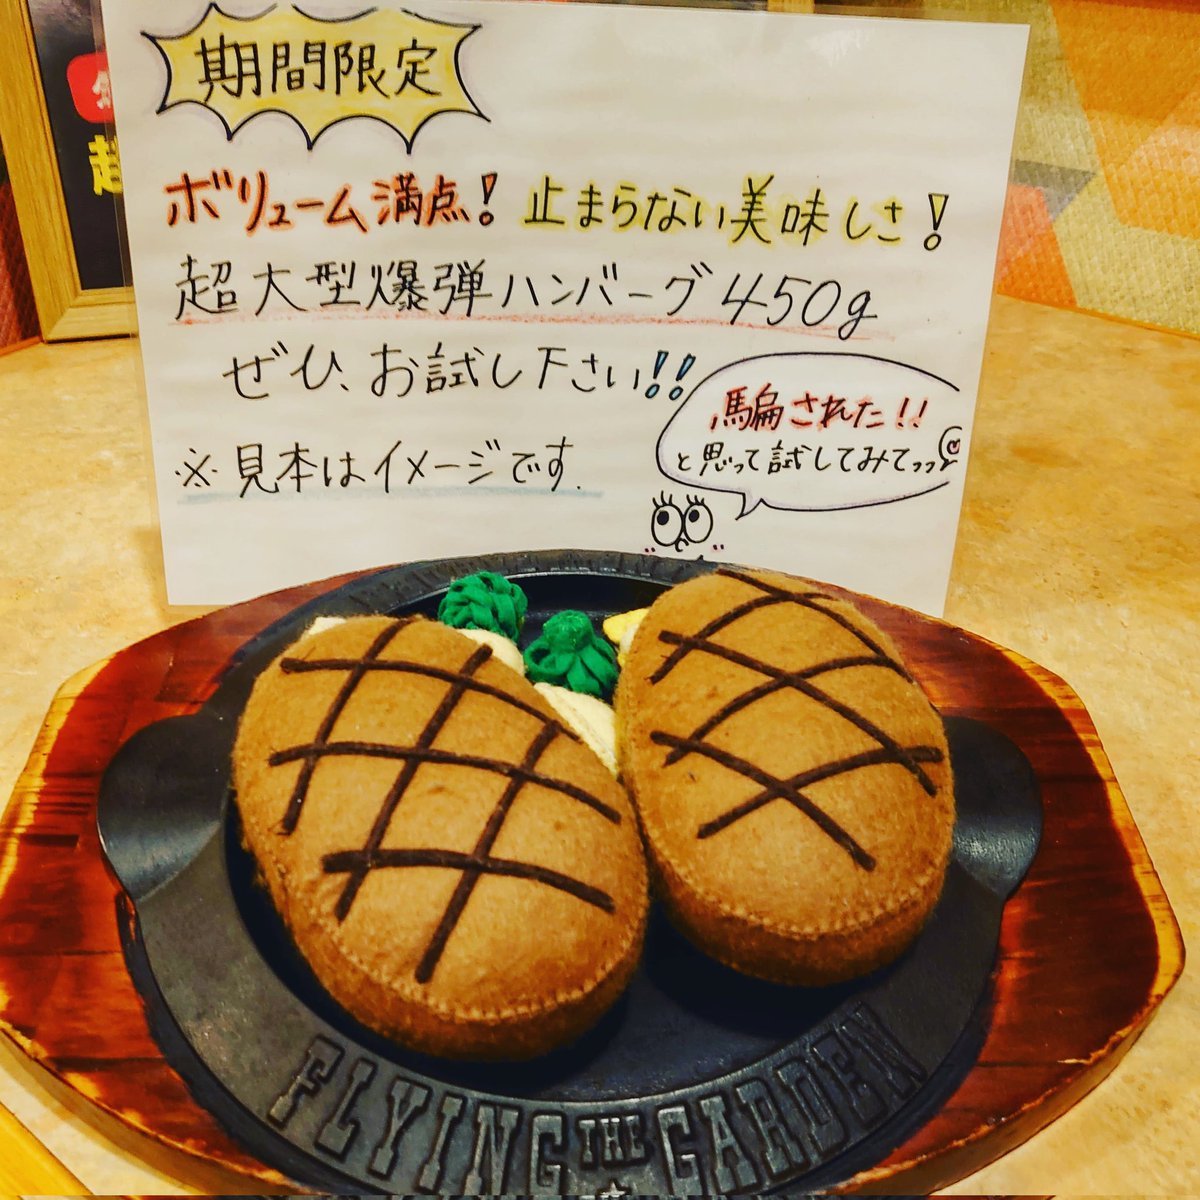 期間限定
ボリューム満点! 止まらない美味しさ!
超大型爆弾ハンバーグ450g
ぜひ、お試し下さい!!
騙された!!
と思って試してみてっっ
※見本はイメージです.
FLYING THE GARDEN